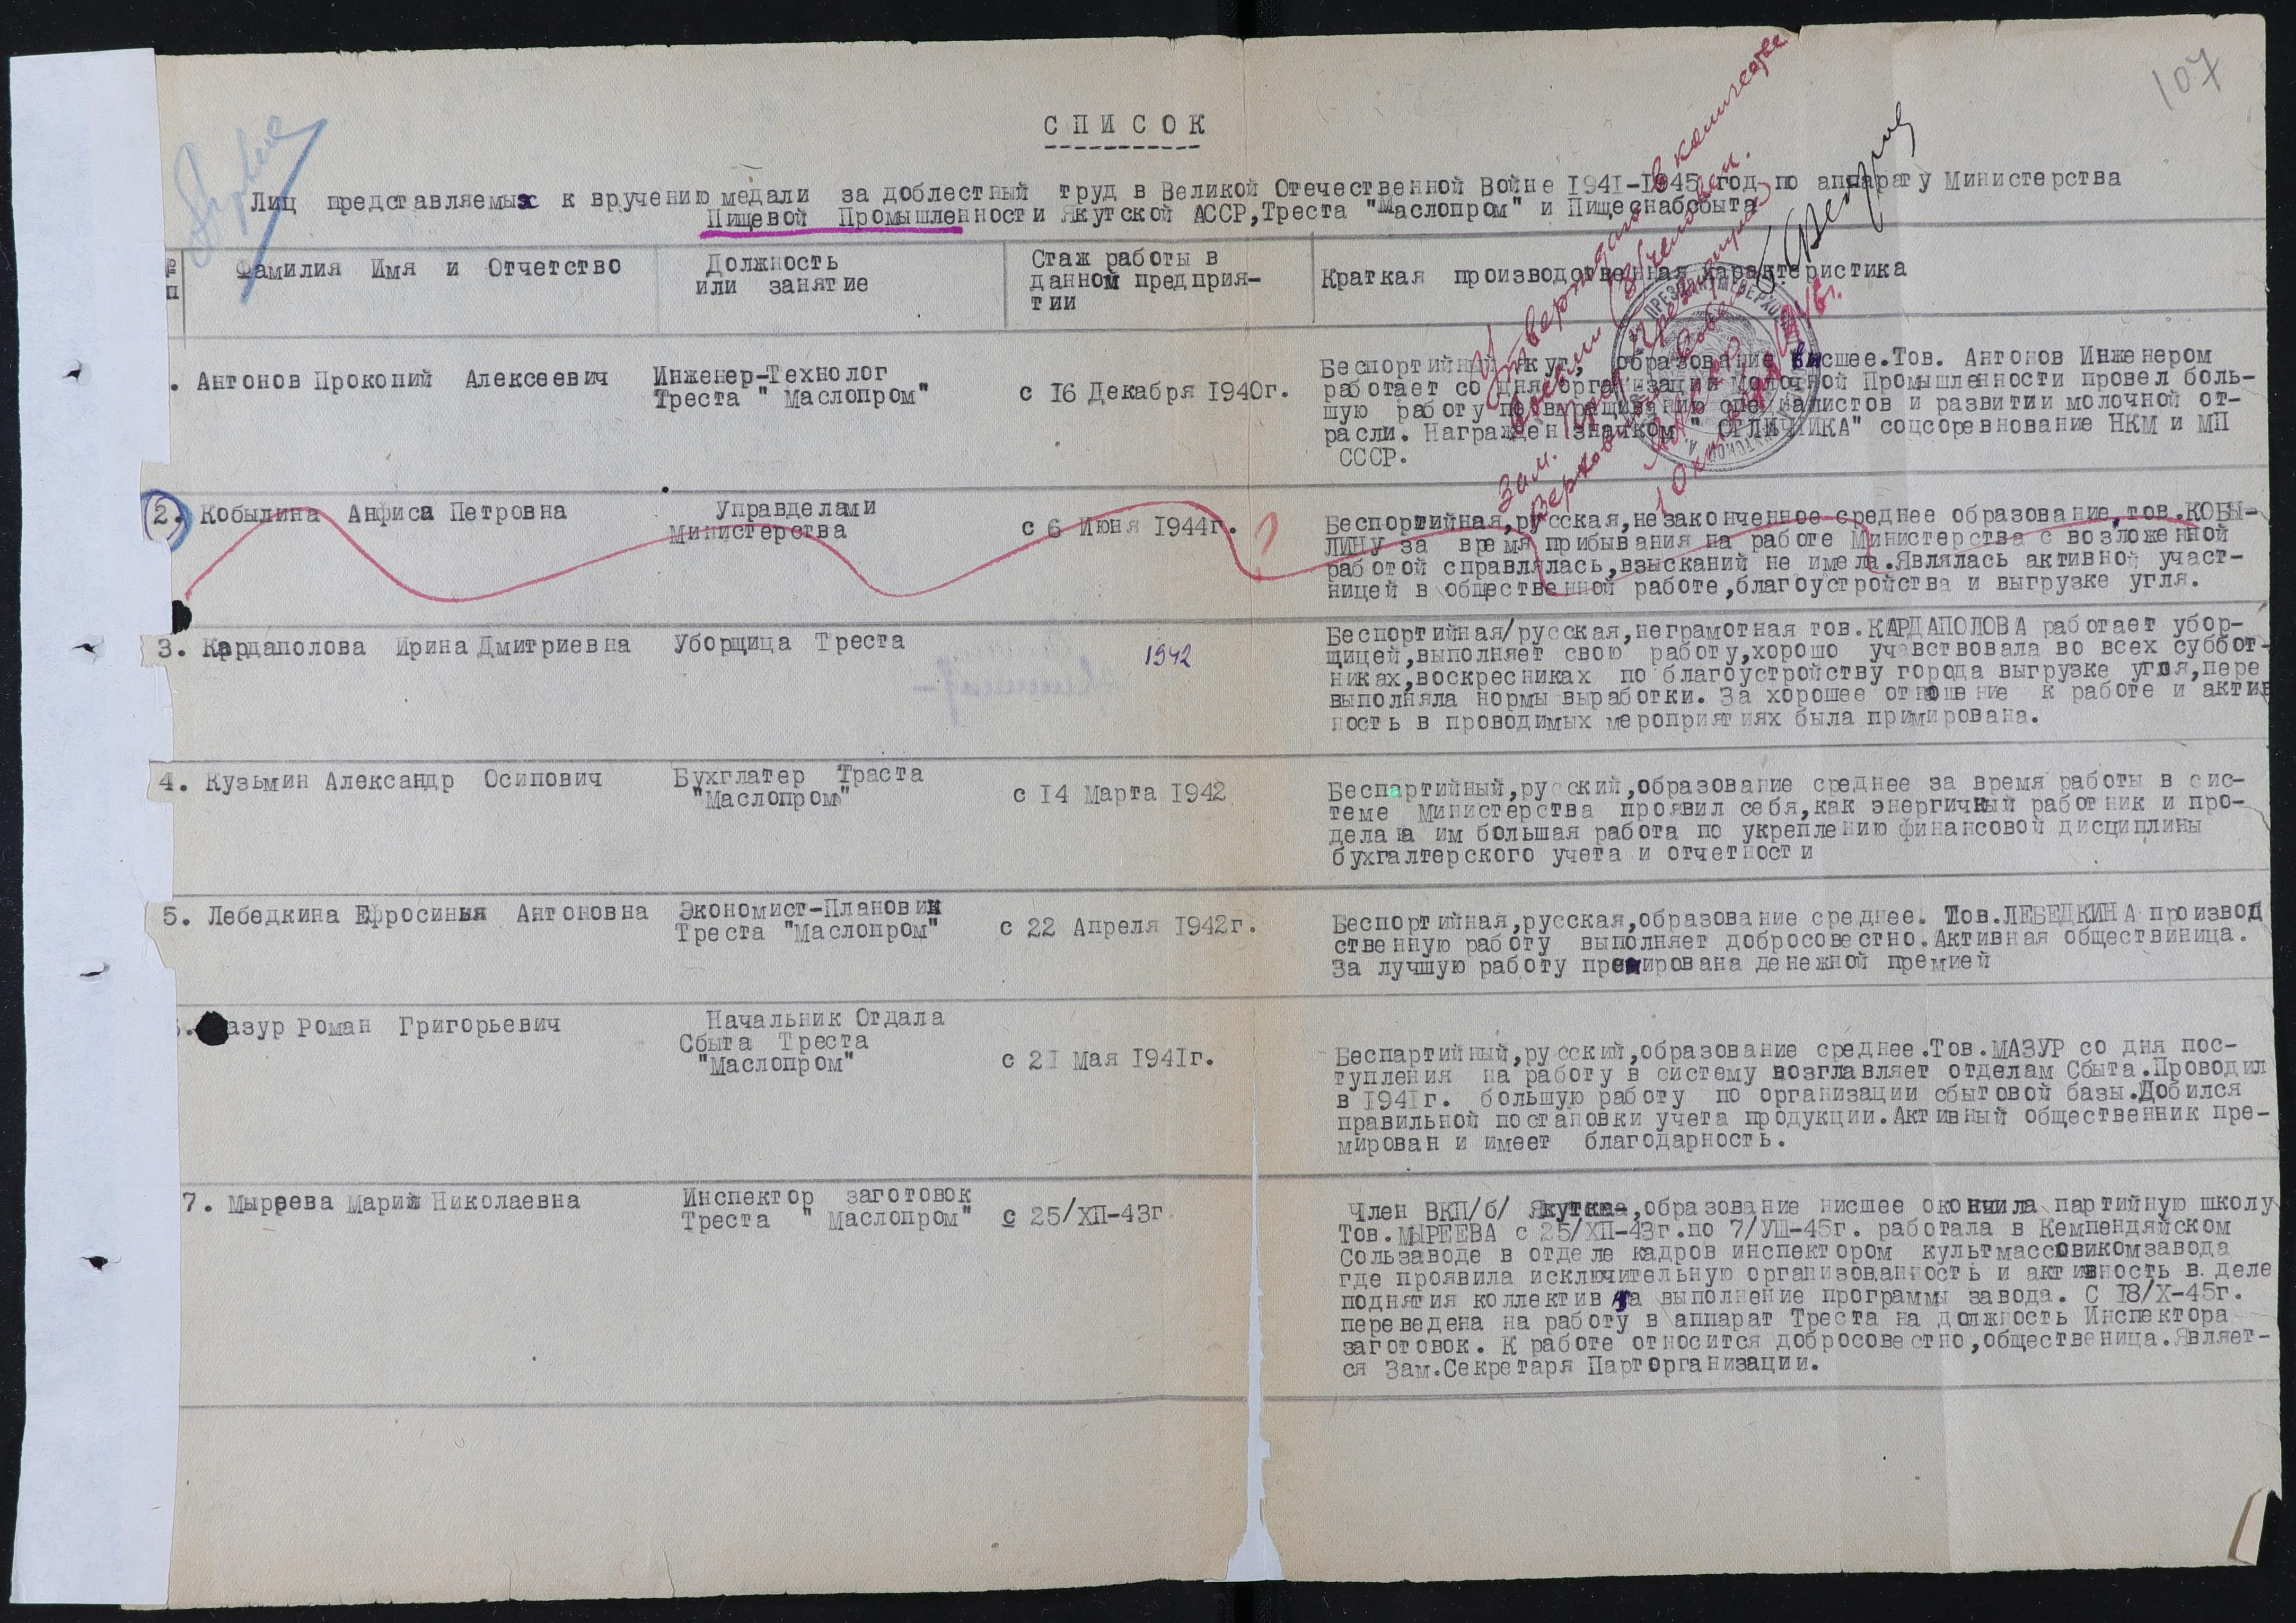 107
СПИСОК
Лиц представляемых к вручению медали за доблестный труд в Великой Отечественной Войне 1941-1945 год по аппарату Министерства
Пищевой Промышленности Якутской АССР, Треста "Маслопром" и Пищеснабсбыта
№ п
Фамилия Имя и Отчетство
Должность или занятие
Стаж работы в данной предприя-
тии
Краткая производственная характеристика
. Антонов Прокопий Алексеевич
Инженер-Технолог
Треста " Маслопром"
с 16 Декабря 1940г.
Беспортийный якут, образование высшее. Тов. Антонов Инженером
работает со дня организации Молочной Промышленности провел боль-
шую работу по выращиванию специалистов и развитии молочной от-
расли. Награжден значком " ОТЛИЧНИКА" соцсоревнование НКМ и МП
СССР.
2. Кобылина Анфиса Петровна
Управделами
Министерства
с 6 Июня 1944г.
Беспортийная, русская, незаконченное среднее образование, тов. КОБЫ-
ЛИНУ за время прибывания на работе Министерства с возложенной
работой справлялась, взысканий не имела. Являлась активной участ-
ницей в общественной работе, благоустройства и выгрузке угля.
3. Кардаполова Ирина Дмитриевна
Уборщица Треста
1942
Беспортийная/русская, неграмотная тов. КАРДАПОЛОВА работает убор-
щицей, выполняет свою работу, хорошо учавствовала во всех суббот-
никах, воскресниках по благоустройству города выгрузке угля, пере
выполняла нормы выработки. За хорошее отношение к работе и актив
ность в проводимых мероприятиях была примирована.
4. Кузьмин Александр Осипович
Бухглатер Траста
"Маслопром"
с 14 Марта 1942
Беспартийный, русский, образование среднее за время работы в сис-
теме Министерства проявил себя, как энергичный работник и про-
делана им большая работа по укреплению финансовой дисциплины
бухгалтерского учета и отчетности
5. Лебедкина Ефросинья Антоновна
Экономист-Плановик
Треста "Маслопром"
с 22 Апреля 1942г.
Беспортийная, русская, образование среднее. Тов. ЛЕБЕДКИНА производ
ственную работу выполняет добросовестно. Активная общественица.
За лучшую работу премирована денежной премией
. азур Роман Григорьевич
Начальник Отдала
Сбыта Треста
"Маслопром"
с 21 Мая 1941г.
Беспартийный, русский, образование среднее. Тов. МАЗУР со дня пос-
тупления на работу в систему возглавляет отделам Сбыта. Проводил
в 1941г. большую работу по организации сбытовой базы. Добился
правильной постановки учета продукции. Активный общественник пре-
мирован и имеет благодарность.
7. Мыреева Мария Николаевна
Инспектор заготовок
Треста " Маслопром"
с 25/ХП-43г.
Член ВКП/б/ Якутка, образование нисшее окончила партийную школу
Тов. МЫРЕЕВА с 25/ХП-43г. по 7/УШ-45г. работала в Кемпендяйском
Сользаводе в отделе кадров инспектором культмассовиком завода
где проявила исключительную организованность и активность в деле
поднятия коллектив на выполнение программы завода. С 18/Х-45г.
переведена на работу в аппарат Треста на должность Инспектора
заготовок. К работе относится добросовестно, общественица. Являет-
ся Зам. Секретаря Парторганизации.